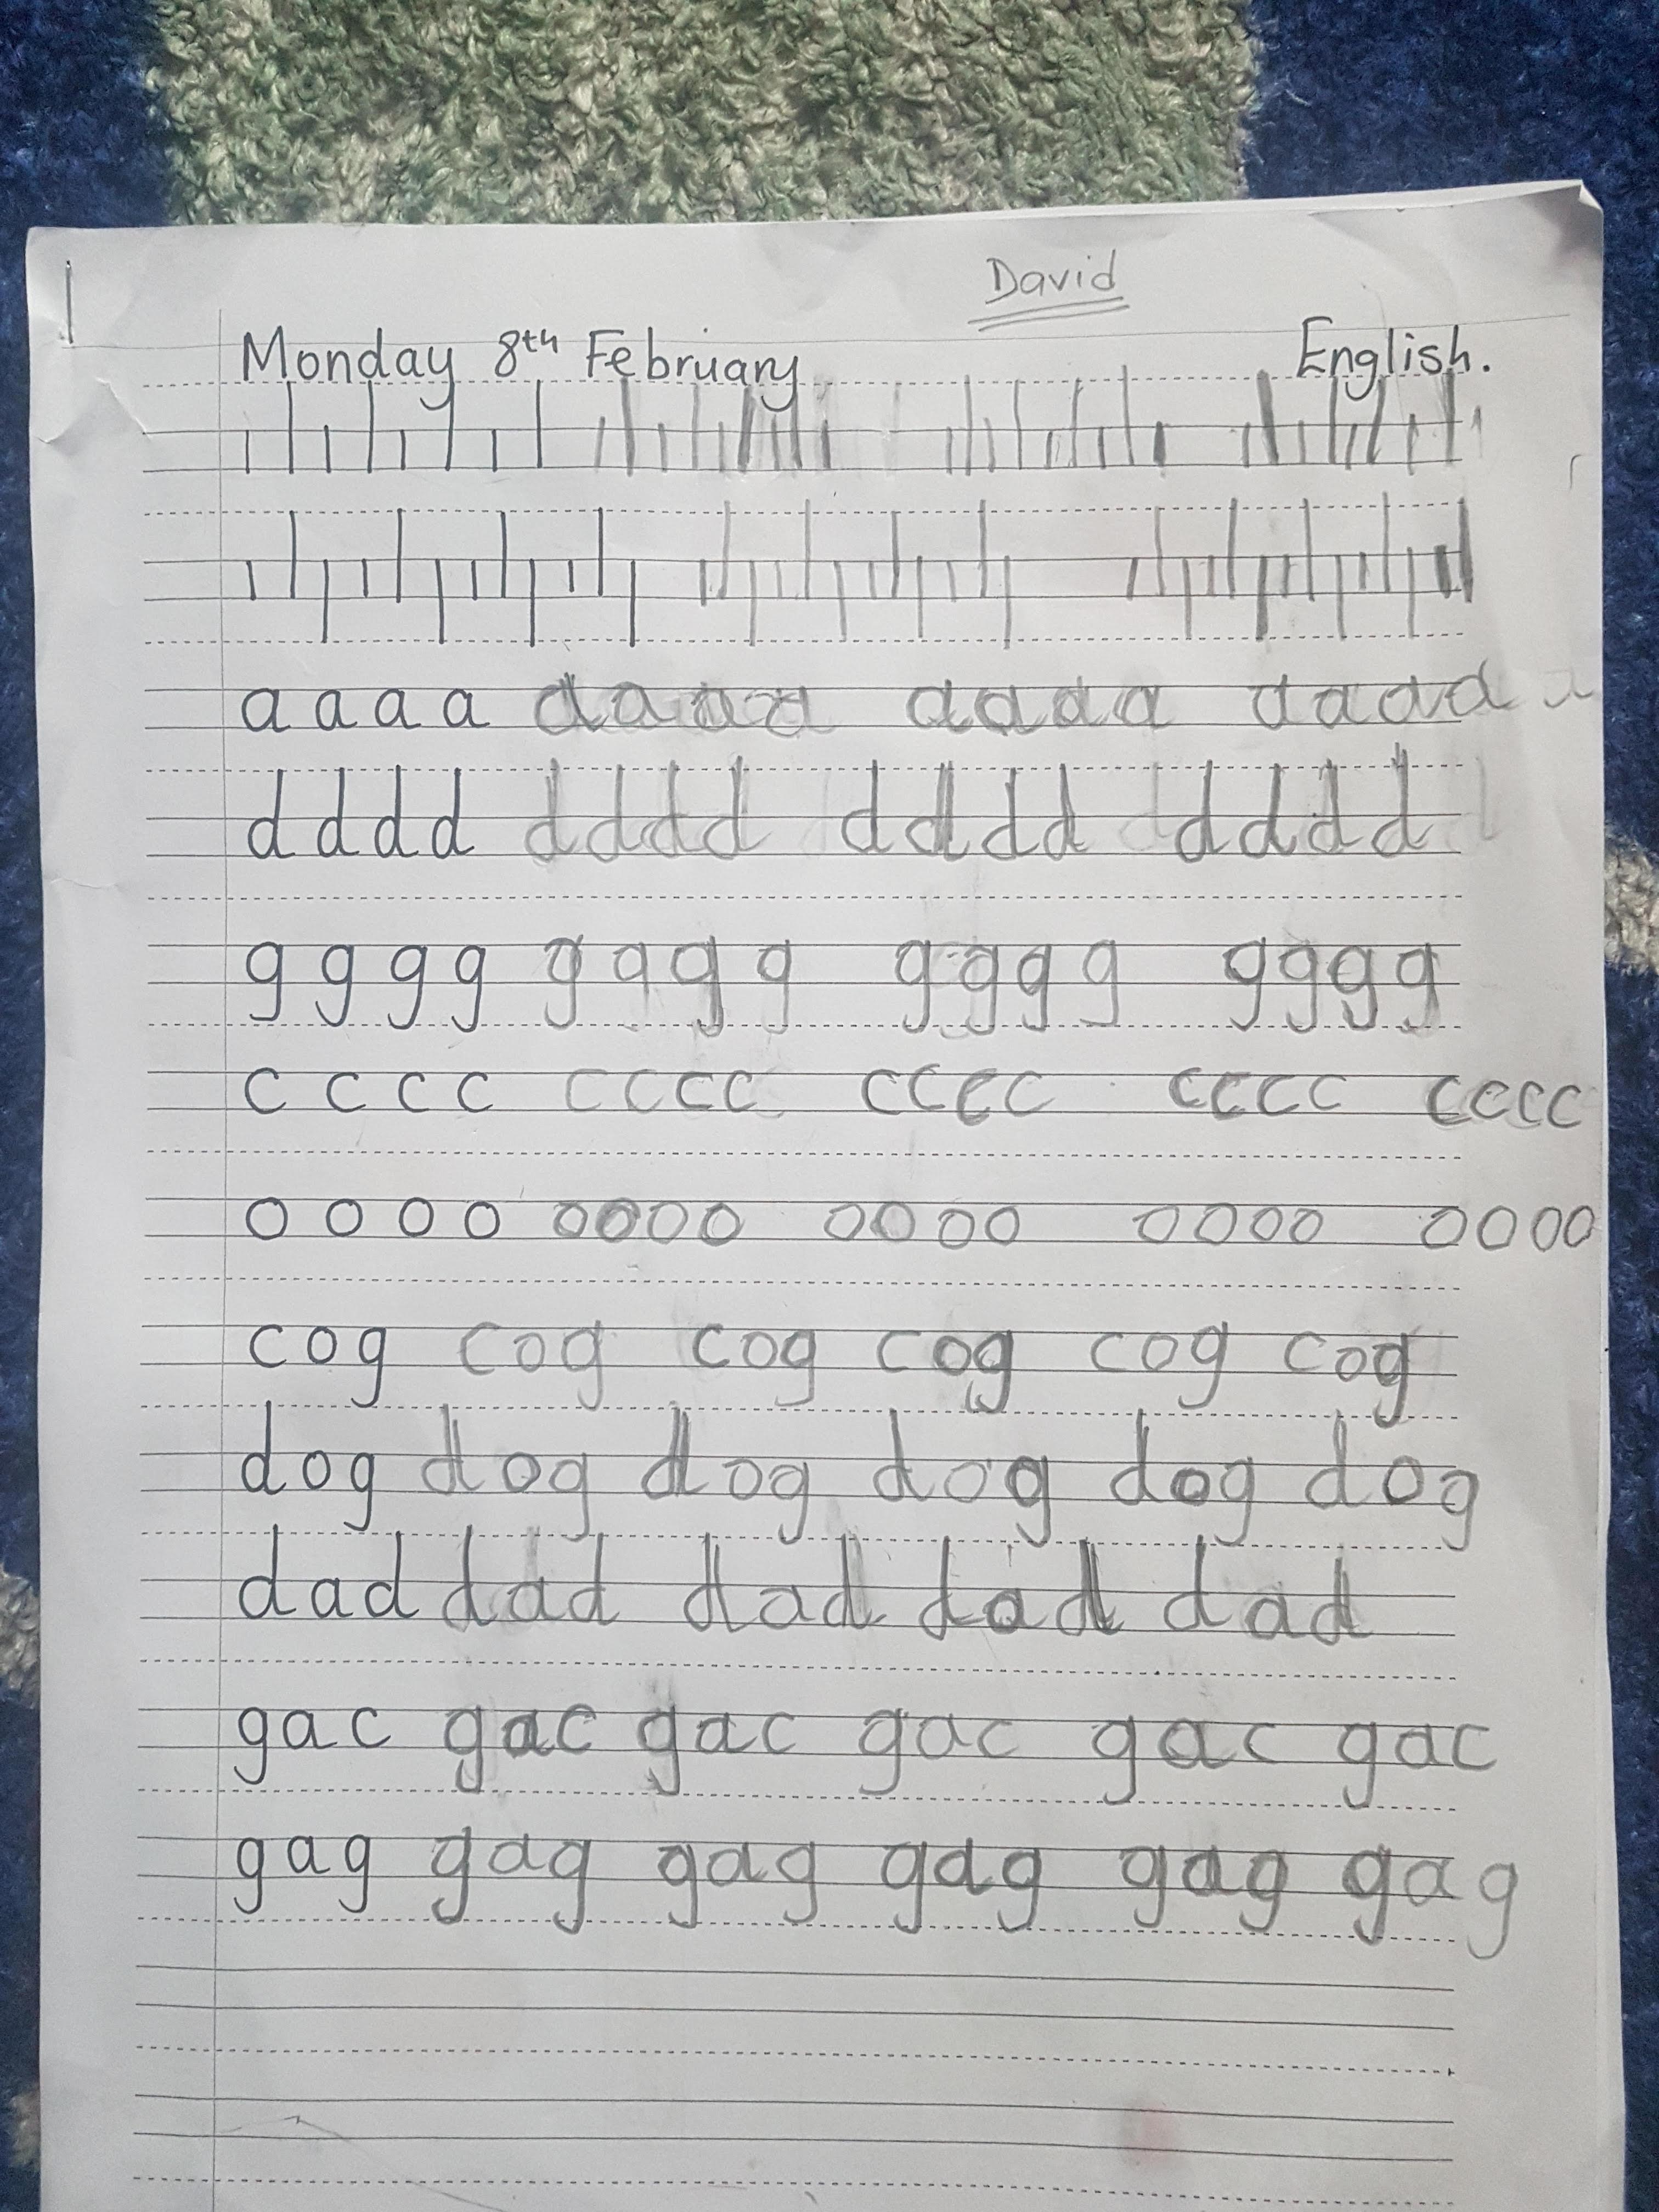 David
Monday 8th February English.
a a a a a a a a a a a a a a a a
d d d d d d d d d d d d d d d d
g g g g g g g g g g g g g g g g
c c c c c c c c c c c c c c c c c c c c
o o o o o o o o o o o o o o o o o o o o
cog cog cog cog cog cog
dog dog dog dog dog dog
dad dad dad dad dad
gac gac gac gac gac gac
gag gag gag gag gag gag